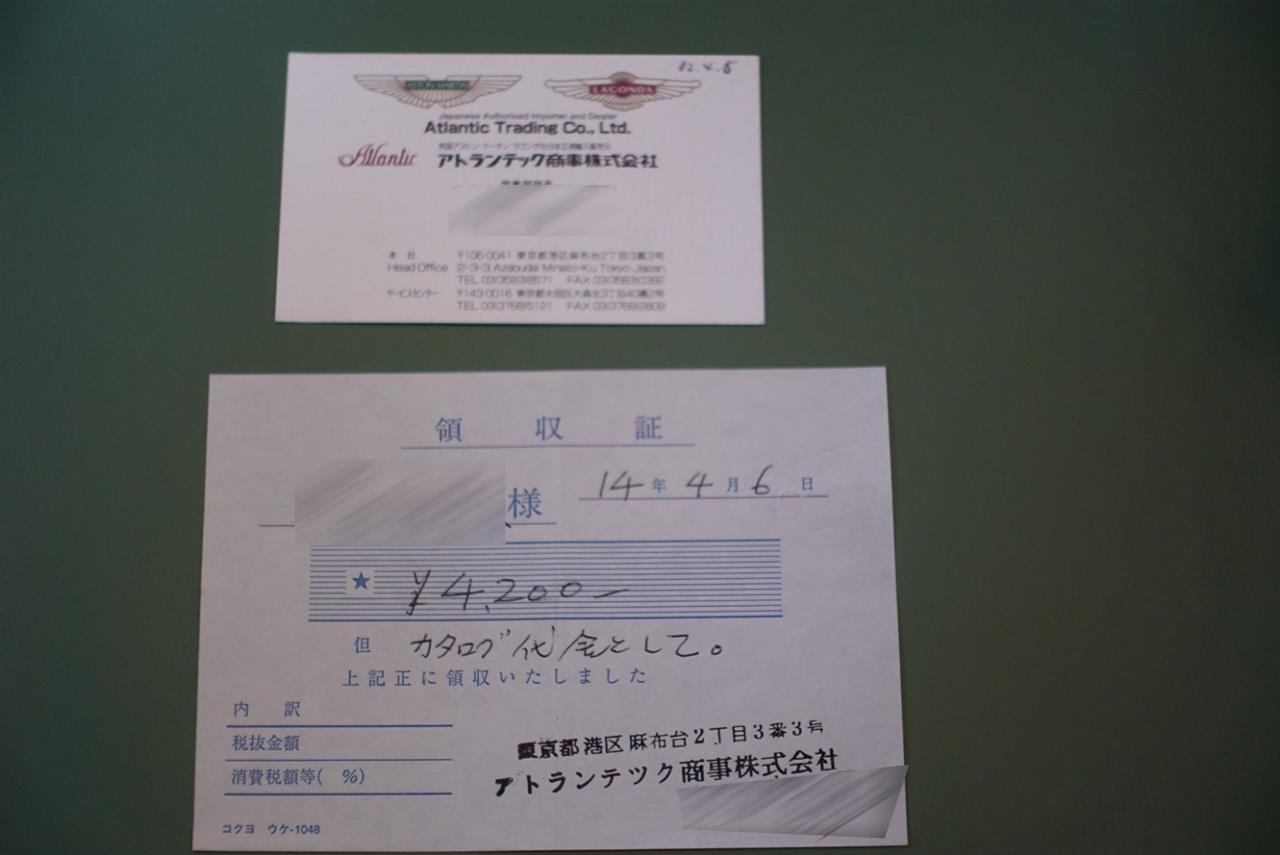 02.4.5
ASTON MARTIN
LAGONDA
Japanese Authorised Importer and Dealer
Atlantic Trading Co., Ltd.
英国アストン・マーチン・ラゴンダ社日本正規輸入販売元
Atlantic アトランテック商事株式会社
本社 〒106-0041 東京都港区麻布台2丁目3番3号
Head Office 2-3-3 Azabudai Minato-Ku Tokyo Japan
TEL 03(3583)8571 FAX 03(3583)0392
サービスセンター 〒143-0016 東京都大田区大森北3丁目40番2号
TEL 03(3768)5121 FAX 03(3768)2808
領収証
様 14年4月6日
★ ¥4,200-
但 カタログ代金として。
上記正に領収いたしました
内訳
税抜金額
消費税額等( %)
東京都港区麻布台2丁目3番3号
アトランテツク商事株式会社
コクヨ ウケ-1048